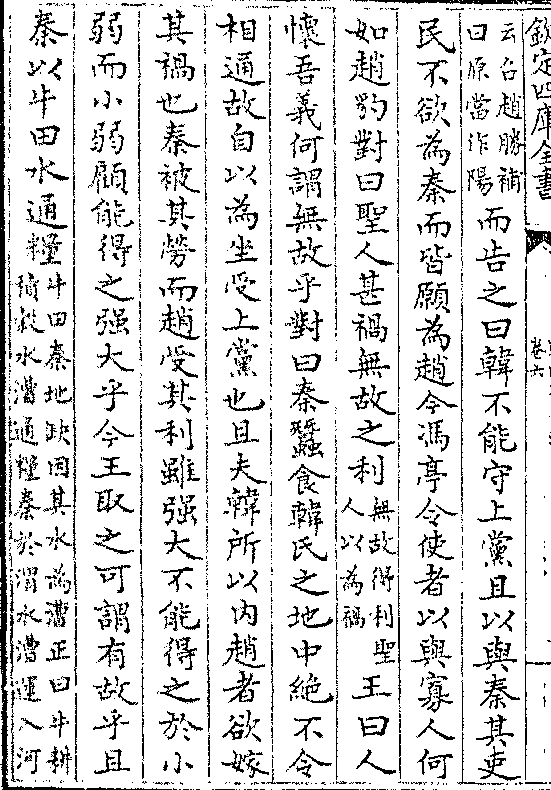 欽定四庫全書
卷六
云召趙勝補
曰原當作陽
而告之曰韓不能守上黨且以與秦其吏
民不欲為秦而皆願為趙今馮亭令使者以與寡人何
如趙豹對曰聖人甚禍無故之利
無故得利聖
人以為禍
王曰人
懷吾義何謂無故乎對曰秦蠶食韓氏之地中絶不令
相通故自以為坐受上黨也且夫韓所以内趙者欲嫁
其禍也秦被其勞而趙受其利雖强大不能得之於小
弱而小弱顧能得之强大乎今王取之可謂有故乎且
秦以牛田水通糧
牛田秦地缺因其水為漕正曰牛耕
積穀水漕通糧秦於渭水漕運入河